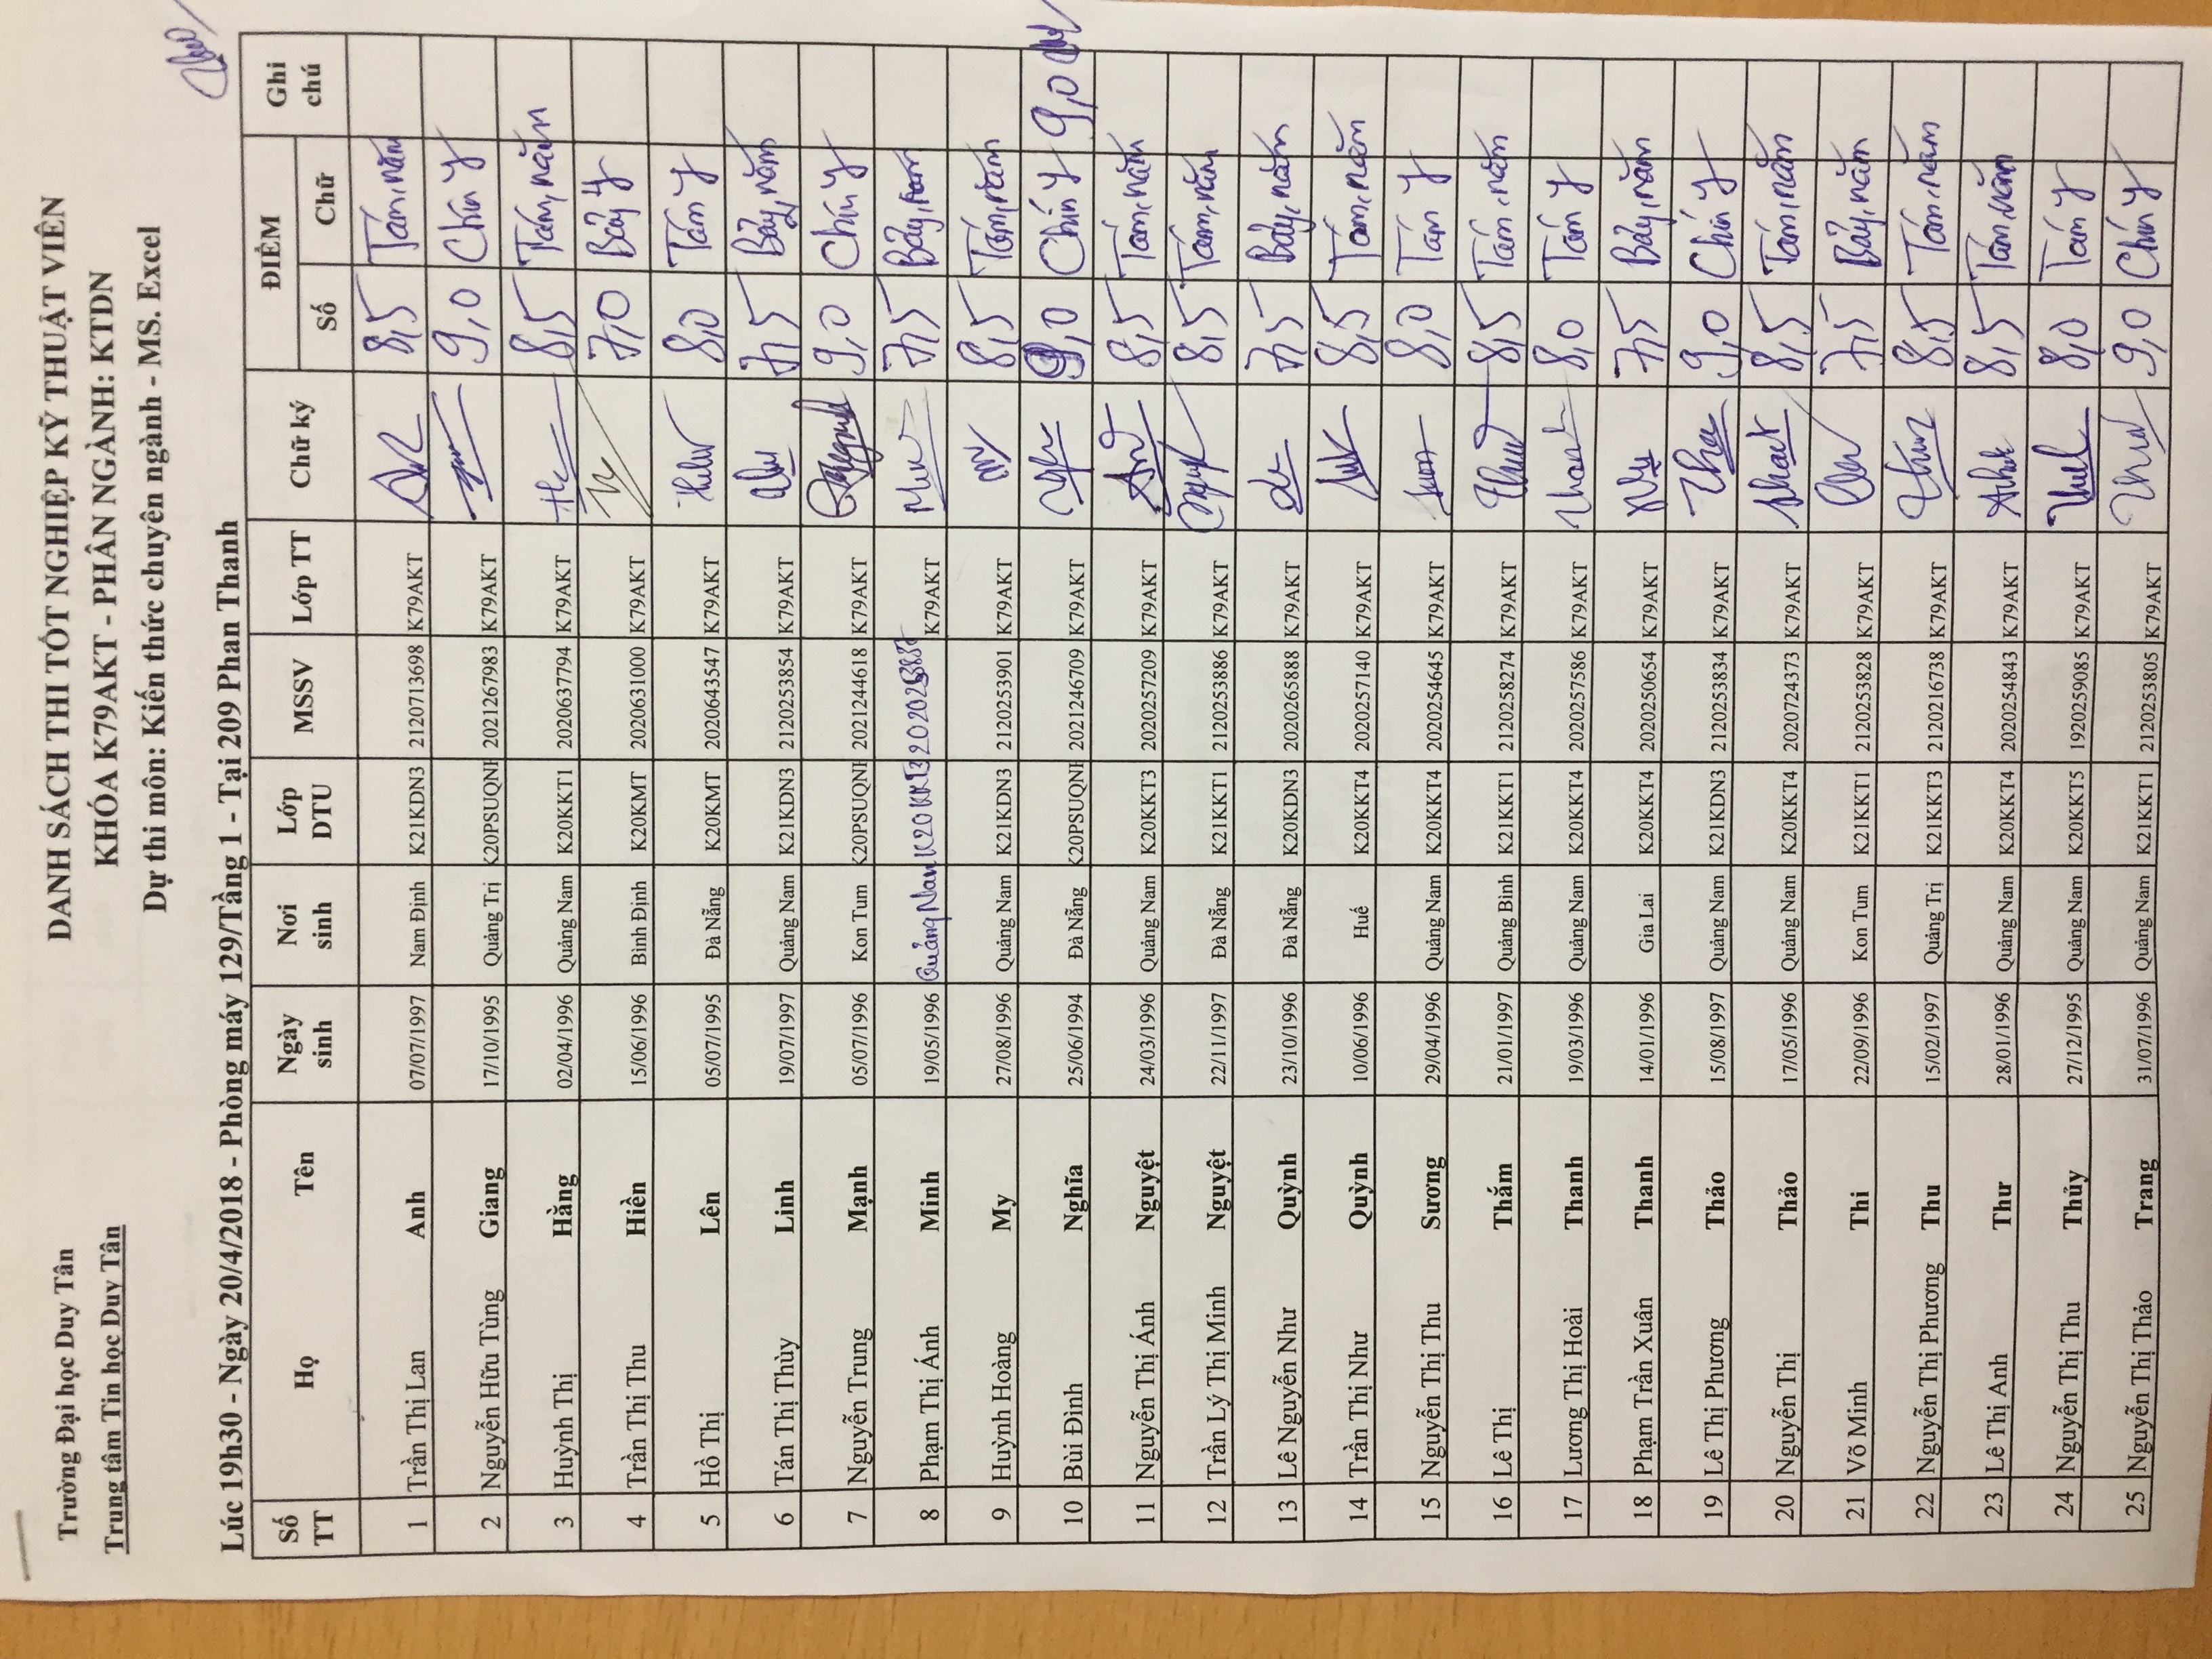 Trường Đại học Duy Tân
Trung tâm Tin học Duy Tân
DANH SÁCH THI TỐT NGHIỆP KỸ THUẬT VIÊN
KHÓA K79AKT - PHÂN NGÀNH: KTDN
Dự thi môn: Kiến thức chuyên ngành - MS. Excel
Lúc 19h30 - Ngày 20/4/2018 - Phòng máy 129/Tầng 1 - Tại 209 Phan Thanh
Số TT Họ Tên Ngày sinh Nơi sinh Lớp DTU MSSV Lớp TT Chữ ký ĐIỂM Số Chữ Ghi chú
1 Trần Thị Lan Anh 07/07/1997 Nam Định K21KDN3 2120713698 K79AKT 8,5 Tám, năm
2 Nguyễn Hữu Tùng Giang 17/10/1995 Quảng Trị K20PSUQNH 2021267983 K79AKT 9,0 Chín y
3 Huỳnh Thị Hằng 02/04/1996 Quảng Nam K20KKT1 2020637794 K79AKT 8,5 Tám, năm
4 Trần Thị Thu Hiền 15/06/1996 Bình Định K20KMT 2020631000 K79AKT 7,0 Bảy y
5 Hồ Thị Lên 05/07/1995 Đà Nẵng K20KMT 2020643547 K79AKT 8,0 Tám y
6 Tán Thị Thùy Linh 19/07/1997 Quảng Nam K21KDN3 2120253854 K79AKT 7,5 Bảy, năm
7 Nguyễn Trung Mạnh 05/07/1996 Kon Tum K20PSUQNH 2021244618 K79AKT 9,0 Chín y
8 Phạm Thị Ánh Minh 19/05/1996 Quảng Nam K20KKT3 K79AKT 7,5 Bảy, năm
9 Huỳnh Hoàng My 27/08/1996 Quảng Nam K21KDN3 2120253901 K79AKT 8,5 Tám, năm
10 Bùi Đình Nghĩa 25/06/1994 Đà Nẵng K20PSUQNH 2021246709 K79AKT 9,0 Chín y 9,0
11 Nguyễn Thị Ánh Nguyệt 24/03/1996 Quảng Nam K20KKT3 2020257209 K79AKT 8,5 Tám, năm
12 Trần Lý Thị Minh Nguyệt 22/11/1997 Đà Nẵng K21KKT1 2120253886 K79AKT 8,5 Tám, năm
13 Lê Nguyễn Như Quỳnh 23/10/1996 Đà Nẵng K20KDN3 2020265888 K79AKT 7,5 Bảy, năm
14 Trần Thị Như Quỳnh 10/06/1996 Huế K20KKT4 2020257140 K79AKT 8,5 Tám, năm
15 Nguyễn Thị Thu Sương 29/04/1996 Quảng Nam K20KKT4 2020254645 K79AKT 8,0 Tám y
16 Lê Thị Thắm 21/01/1997 Quảng Bình K21KKT1 2120258274 K79AKT 8,5 Tám, năm
17 Lương Thị Hoài Thanh 19/03/1996 Quảng Nam K20KKT4 2020257586 K79AKT 8,0 Tám y
18 Phạm Trần Xuân Thanh 14/01/1996 Gia Lai K20KKT4 2020250654 K79AKT 7,5 Bảy, năm
19 Lê Thị Phương Thảo 15/08/1997 Quảng Nam K21KDN3 2120253834 K79AKT 9,0 Chín y
20 Nguyễn Thị Thảo 17/05/1996 Quảng Nam K20KKT4 2020724373 K79AKT 8,5 Tám, năm
21 Võ Minh Thi 22/09/1996 Kon Tum K21KKT1 2120253828 K79AKT 7,5 Bảy, năm
22 Nguyễn Thị Phương Thu 15/02/1997 Quảng Trị K21KKT3 2120216738 K79AKT 8,5 Tám, năm
23 Lê Thị Anh Thư 28/01/1996 Quảng Nam K20KKT4 2020254843 K79AKT 8,5 Tám, năm
24 Nguyễn Thị Thu Thủy 27/12/1995 Quảng Nam K20KKT5 1920259085 K79AKT 8,0 Tám y
25 Nguyễn Thị Thảo Trang 31/07/1996 Quảng Nam K21KKT1 2120253805 K79AKT 9,0 Chín y